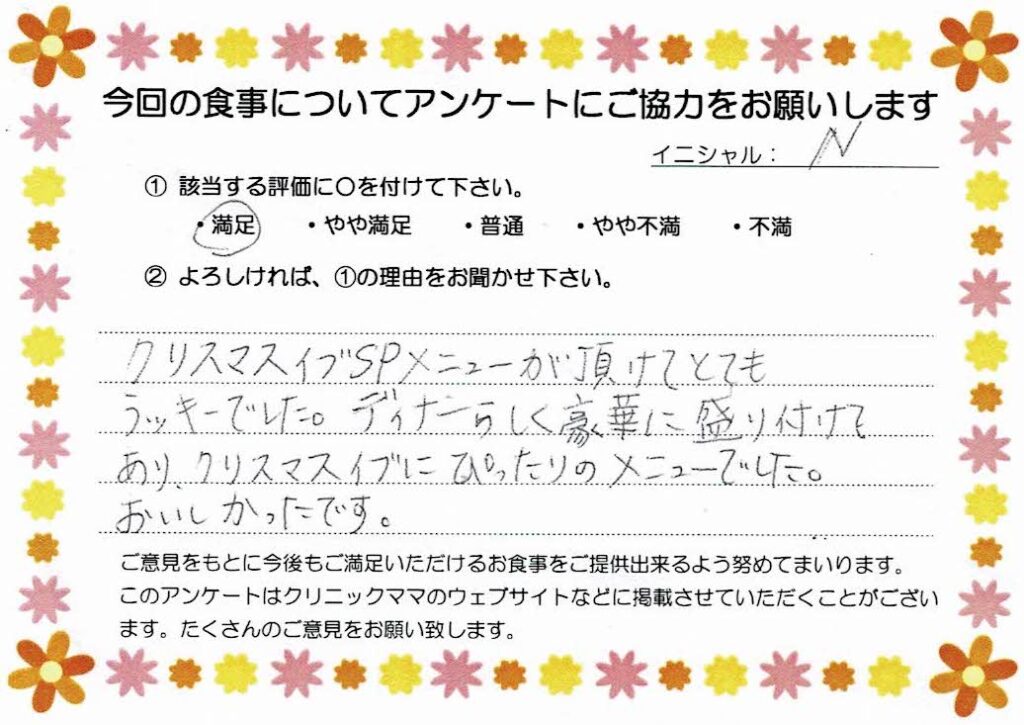 今回の食事についてアンケートにご協力をお願いします
イニシャル： N
① 該当する評価に〇を付けて下さい。
・満足 ・やや満足 ・普通 ・やや不満 ・不満
② よろしければ、①の理由をお聞かせ下さい。
クリスマスイブSPメニューが頂けてとても
ラッキーでした。ディナーらしく豪華に盛り付けて
あり、クリスマスイブにぴったりのメニューでした。
おいしかったです。
ご意見をもとに今後もご満足いただけるお食事をご提供出来るよう努めてまいります。
このアンケートはクリニックママのウェブサイトなどに掲載させていただくことがござい
ます。たくさんのご意見をお願い致します。